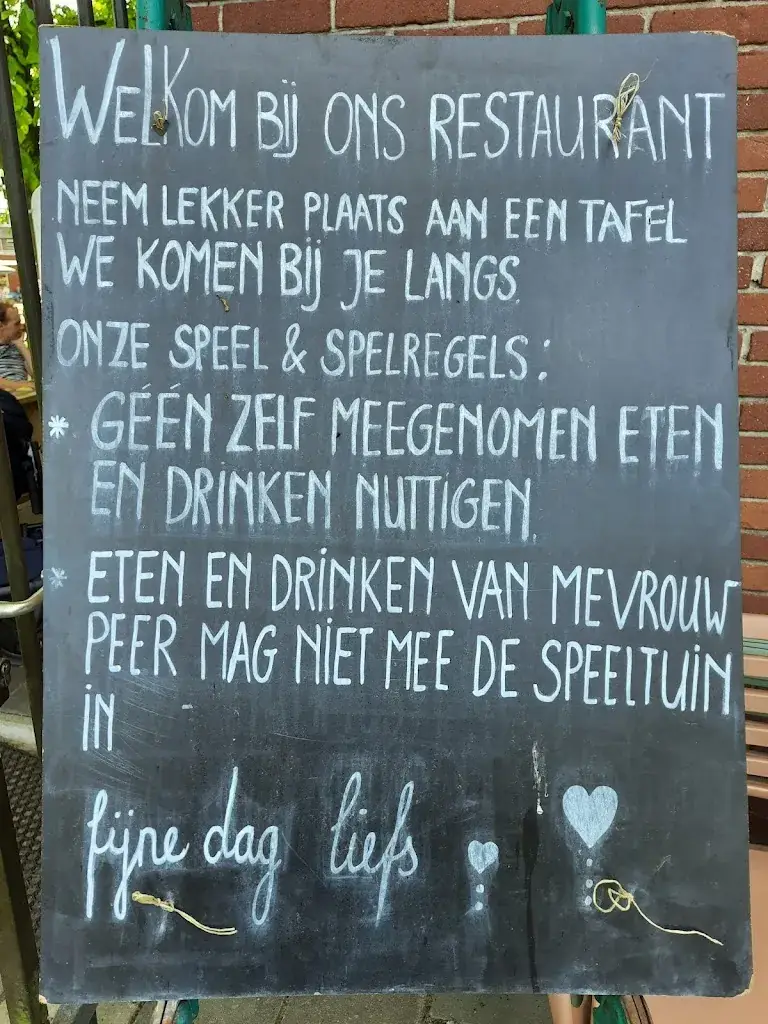 WELKOM BIJ ONS RESTAURANT
NEEM LEKKER PLAATS AAN EEN TAFEL
WE KOMEN BIJ JE LANGS.
ONZE SPEEL & SPELREGELS:
* GÉÉN ZELF MEEGENOMEN ETEN
EN DRINKEN NUTTIGEN.
* ETEN EN DRINKEN VAN MEVROUW
PEER MAG NIET MEE DE SPEELTUIN
IN
fijne dag liefs